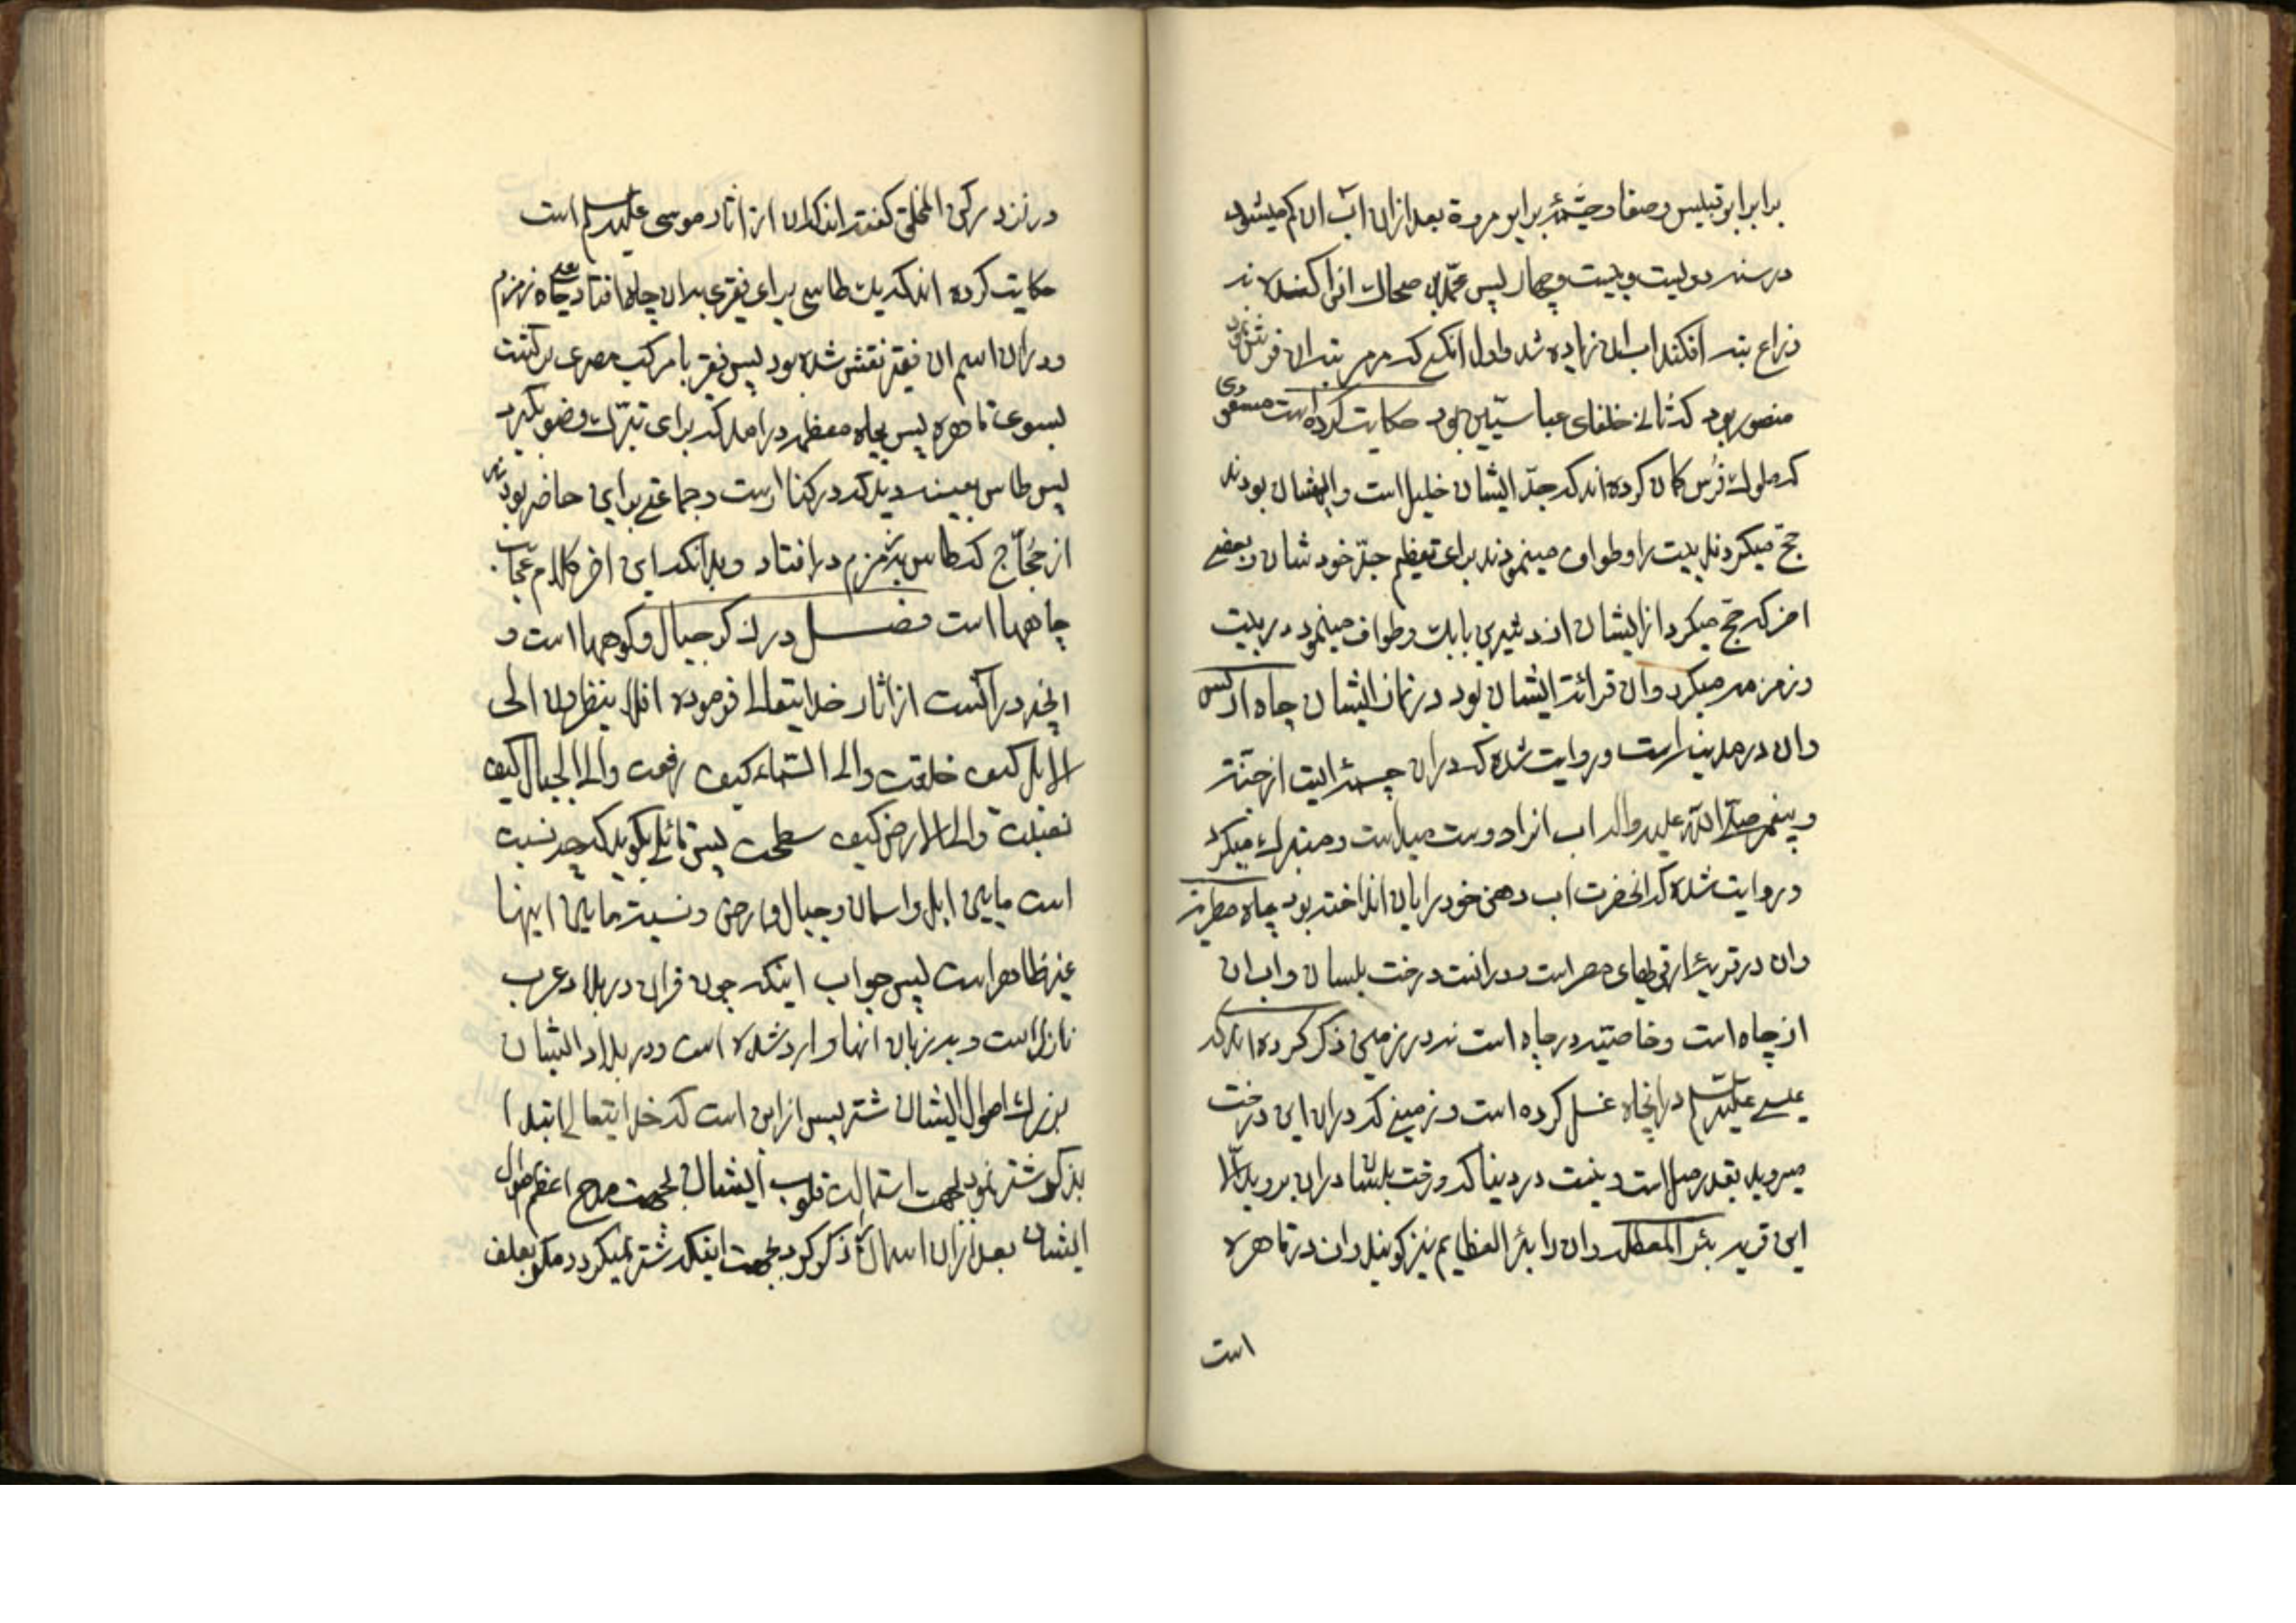 برابر ابوقبیس و صفا و چشمهٔ برابر مروة بعد ازان آب ان کم میشود
در سنه دویست و بیست و چهار پس محمد بن ضحاک انرا کندند نه
ذراع بته افکند اب ان زیاده شد و اول انکسی که مرمر بته ان فرش نمود
منصور بود که ثانی خلفای عباسیین بود حکایت کرده است مسعودی
که ملوک فرس کمان کرده اند که جد ایشان خلیل است و ایشان بودند
حج میکردند بیت را و طواف مینمودند برای تعظیم جد خودشان و بعضی
اخر که حج میکرد از ایشان اردشیر بن بابک و طواف مینمود در بیت
و زمزمه میکرد وان قرائت ایشان بود در زمان ایشان چاه اریس
وان در مدینه است و روایت شده که دران چشمه ایست از جنة
و پیغمبر صلی الله علیه واله اب انرا دوست میداشت و متبرک میکرد
و روایت شده که انحضرت اب دهن خود را بان انداخته بود چاه مطریه
وان در قریهٔ از قرهای مصر است و درانست درخت بلسان و اب ان
از چاه است و خاصیت در چاه است نه در زمین ذکر کرده اند که
عیسی علیه السلام در انچاه غسل کرده است و زمینی که دران این درخت
میروید بقدر میل است و نیست در دنیا که درخت بلسان دران بروید الا
این قریه بئر المعطله وان را بئر العظایم نیز کویند وان در قاهره
است
در نزد رکن المخلق کفته اند که ان از اثار موسی علیه السلام است
حکایت کرده اند که یک طاسی برای فقیری بدان چاه افتاد یعنی چاه زمزم
ودران اسم ان فقیر نقش شده بود پس فقیر با مرکب مصری برکشت
بسوی قاهره پس بچاه معظمه درامد که برای تبرک وضو بکیرد
پس طاس بعینه دید که در کنار است و جماعتی براین حاضر بودند
از حجاج که طاس بئر زمزم در افتاد و بدانکه این اخر کلام عجایب
چاهها است فصل در ذکر جبال و کوهها است و
انچه درآنست از اثار خدایتعالی فرموده افلا ینظرون الی
الابل کیف خلقت والی السماء کیف رفعت والی الجبال کیف
نصبت والی الارض کیف سطحت پس قائلی بکوید که چه نسبت
است مابین ابل و اسمان و جبال و ارض و نسبت مابین اینها
غیر ظاهر است پس جواب اینکه چون قران در بلاد عرب
نازل است و بر زبان انها وارد شده است ودر بلاد ایشان
بزرک اموال ایشان شتر پس از این است که خدایتعالی ابتدا
بذکر شتر نمود بجهت استمالت قلوب ایشان بجهت مدح اعظم اموال
ایشان بعد ازان اسمان ذکر کرد بجهت اینکه شتر نمیکردد مکر بعلف